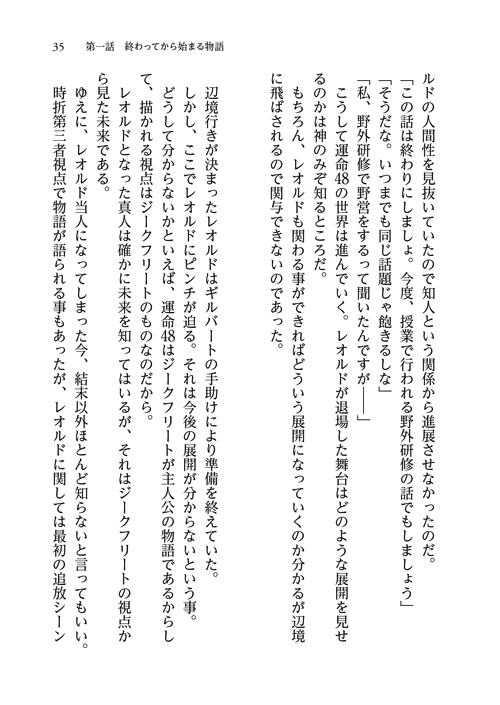 35　第一話　終わってから始まる物語
ルドの人間性を見抜いていたので知人という関係から進展させなかったのだ。
「この話は終わりにしましょ。今度、授業で行われる野外研修の話でもしましょう」
「そうだな。いつまでも同じ話題じゃ飽きるしな」
「私、野外研修で野営をするって聞いたんですが――」
こうして運命48の世界は進んでいく。レオルドが退場した舞台はどのような展開を見せ
るのかは神のみぞ知るところだ。
もちろん、レオルドも関わる事ができればどういう展開になっていくのか分かるが辺境
に飛ばされるので関与できないのであった。
辺境行きが決まったレオルドはギルバートの手助けにより準備を終えていた。
しかし、ここでレオルドにピンチが迫る。それは今後の展開が分からないという事。
どうして分からないかといえば、運命48はジークフリートが主人公の物語であるからし
て、描かれる視点はジークフリートのものなのだから。
レオルドとなった真人は確かに未来を知ってはいるが、それはジークフリートの視点か
ら見た未来である。
ゆえに、レオルド当人になってしまった今、結末以外ほとんど知らないと言ってもいい。
時折第三者視点で物語が語られる事もあったが、レオルドに関しては最初の追放シーン